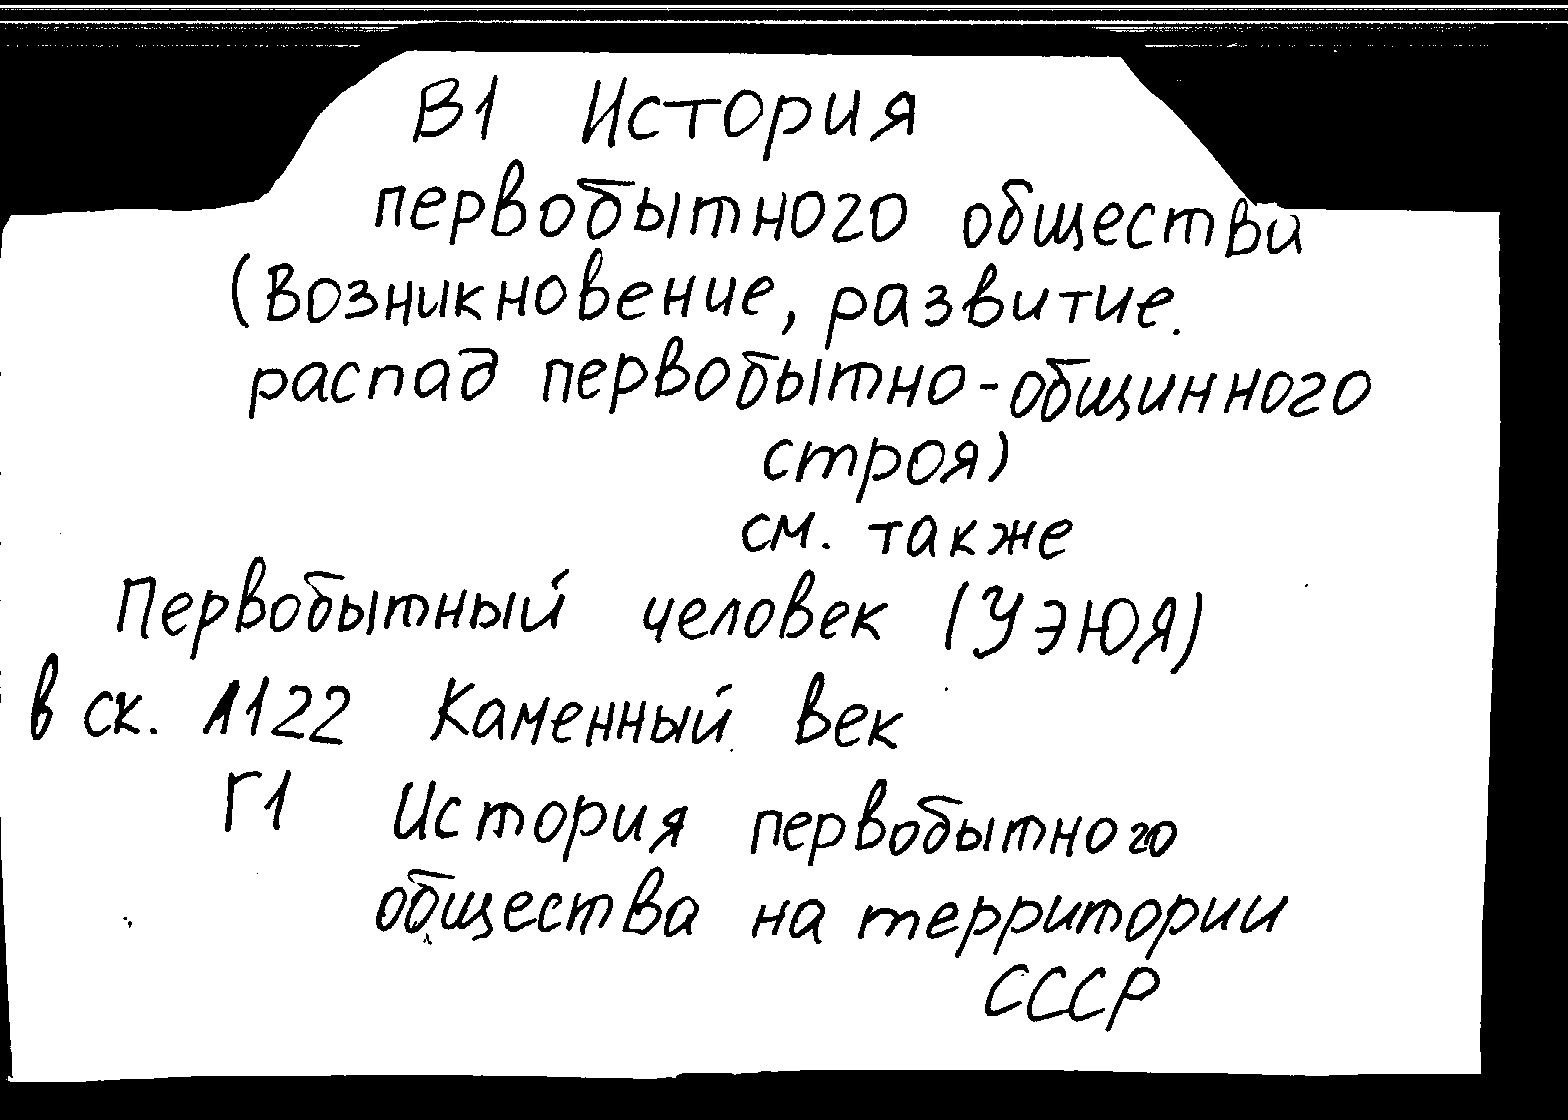 В1 История
первобытного общества
(Возникновение, развитие.
распад первобытно-общинного
строя)
см. также
Первобытный человек (УЭЮЯ)
в ск. Л122 Каменный век
Г1 История первобытного
общества на территории
СССР